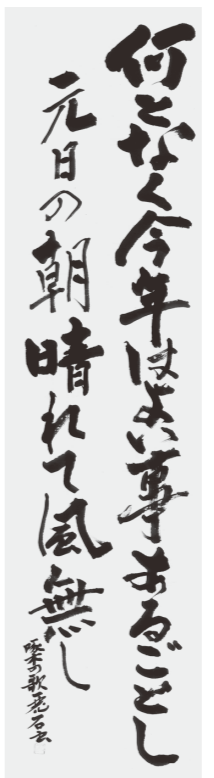 何となく今年はよい事あるごとし
元日の朝晴れて風無し
啄木の歌